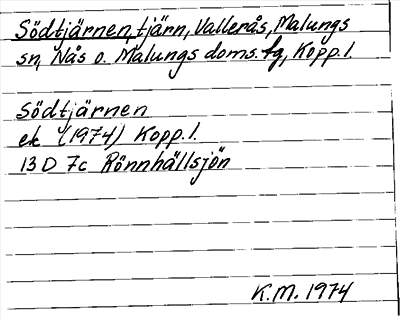 Södtjärnen, tjärn, Vallerås, Malungs
sn, Nås o. Malungs doms. fg, Kopp. l.
Södtjärnen
ek (1974) Kopp. l.
13 D 7c Rönnhällsjön
K.M. 1974